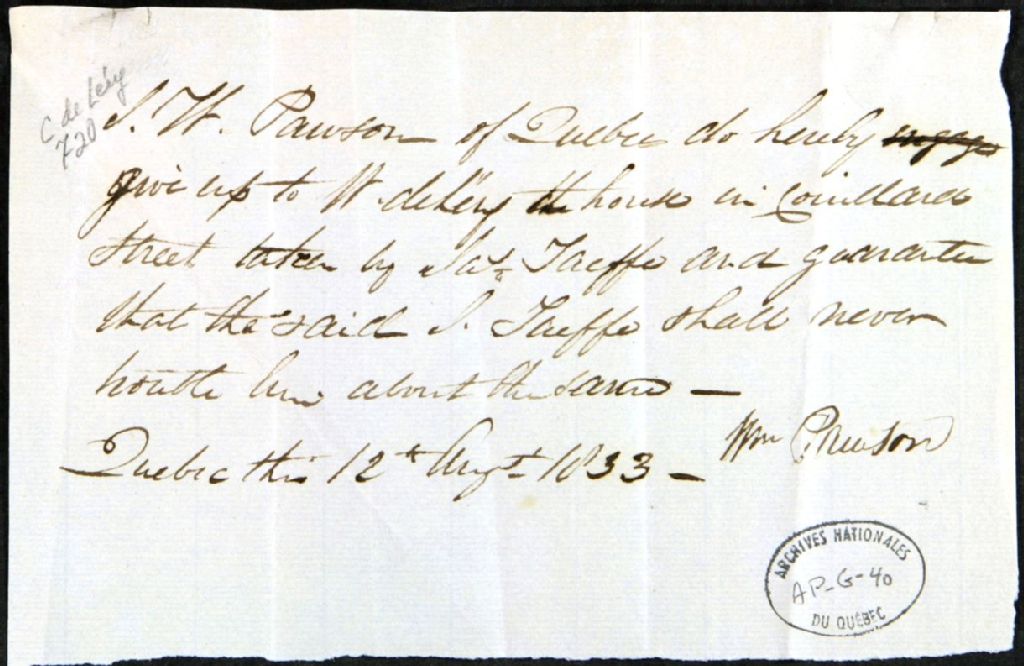 C de Léry
720
I. W. Pawson of Quebec do hereby engage
give up to W. deLery the house in Couillard
Street taken by Jas. Taeffe and guarantee
that the said J. Taeffe shall never
trouble him about the same —
Quebec this 12th Augt. 1833 —
Wm Pawson
ARCHIVES NATIONALES
AP-G-40
DU QUÉBEC